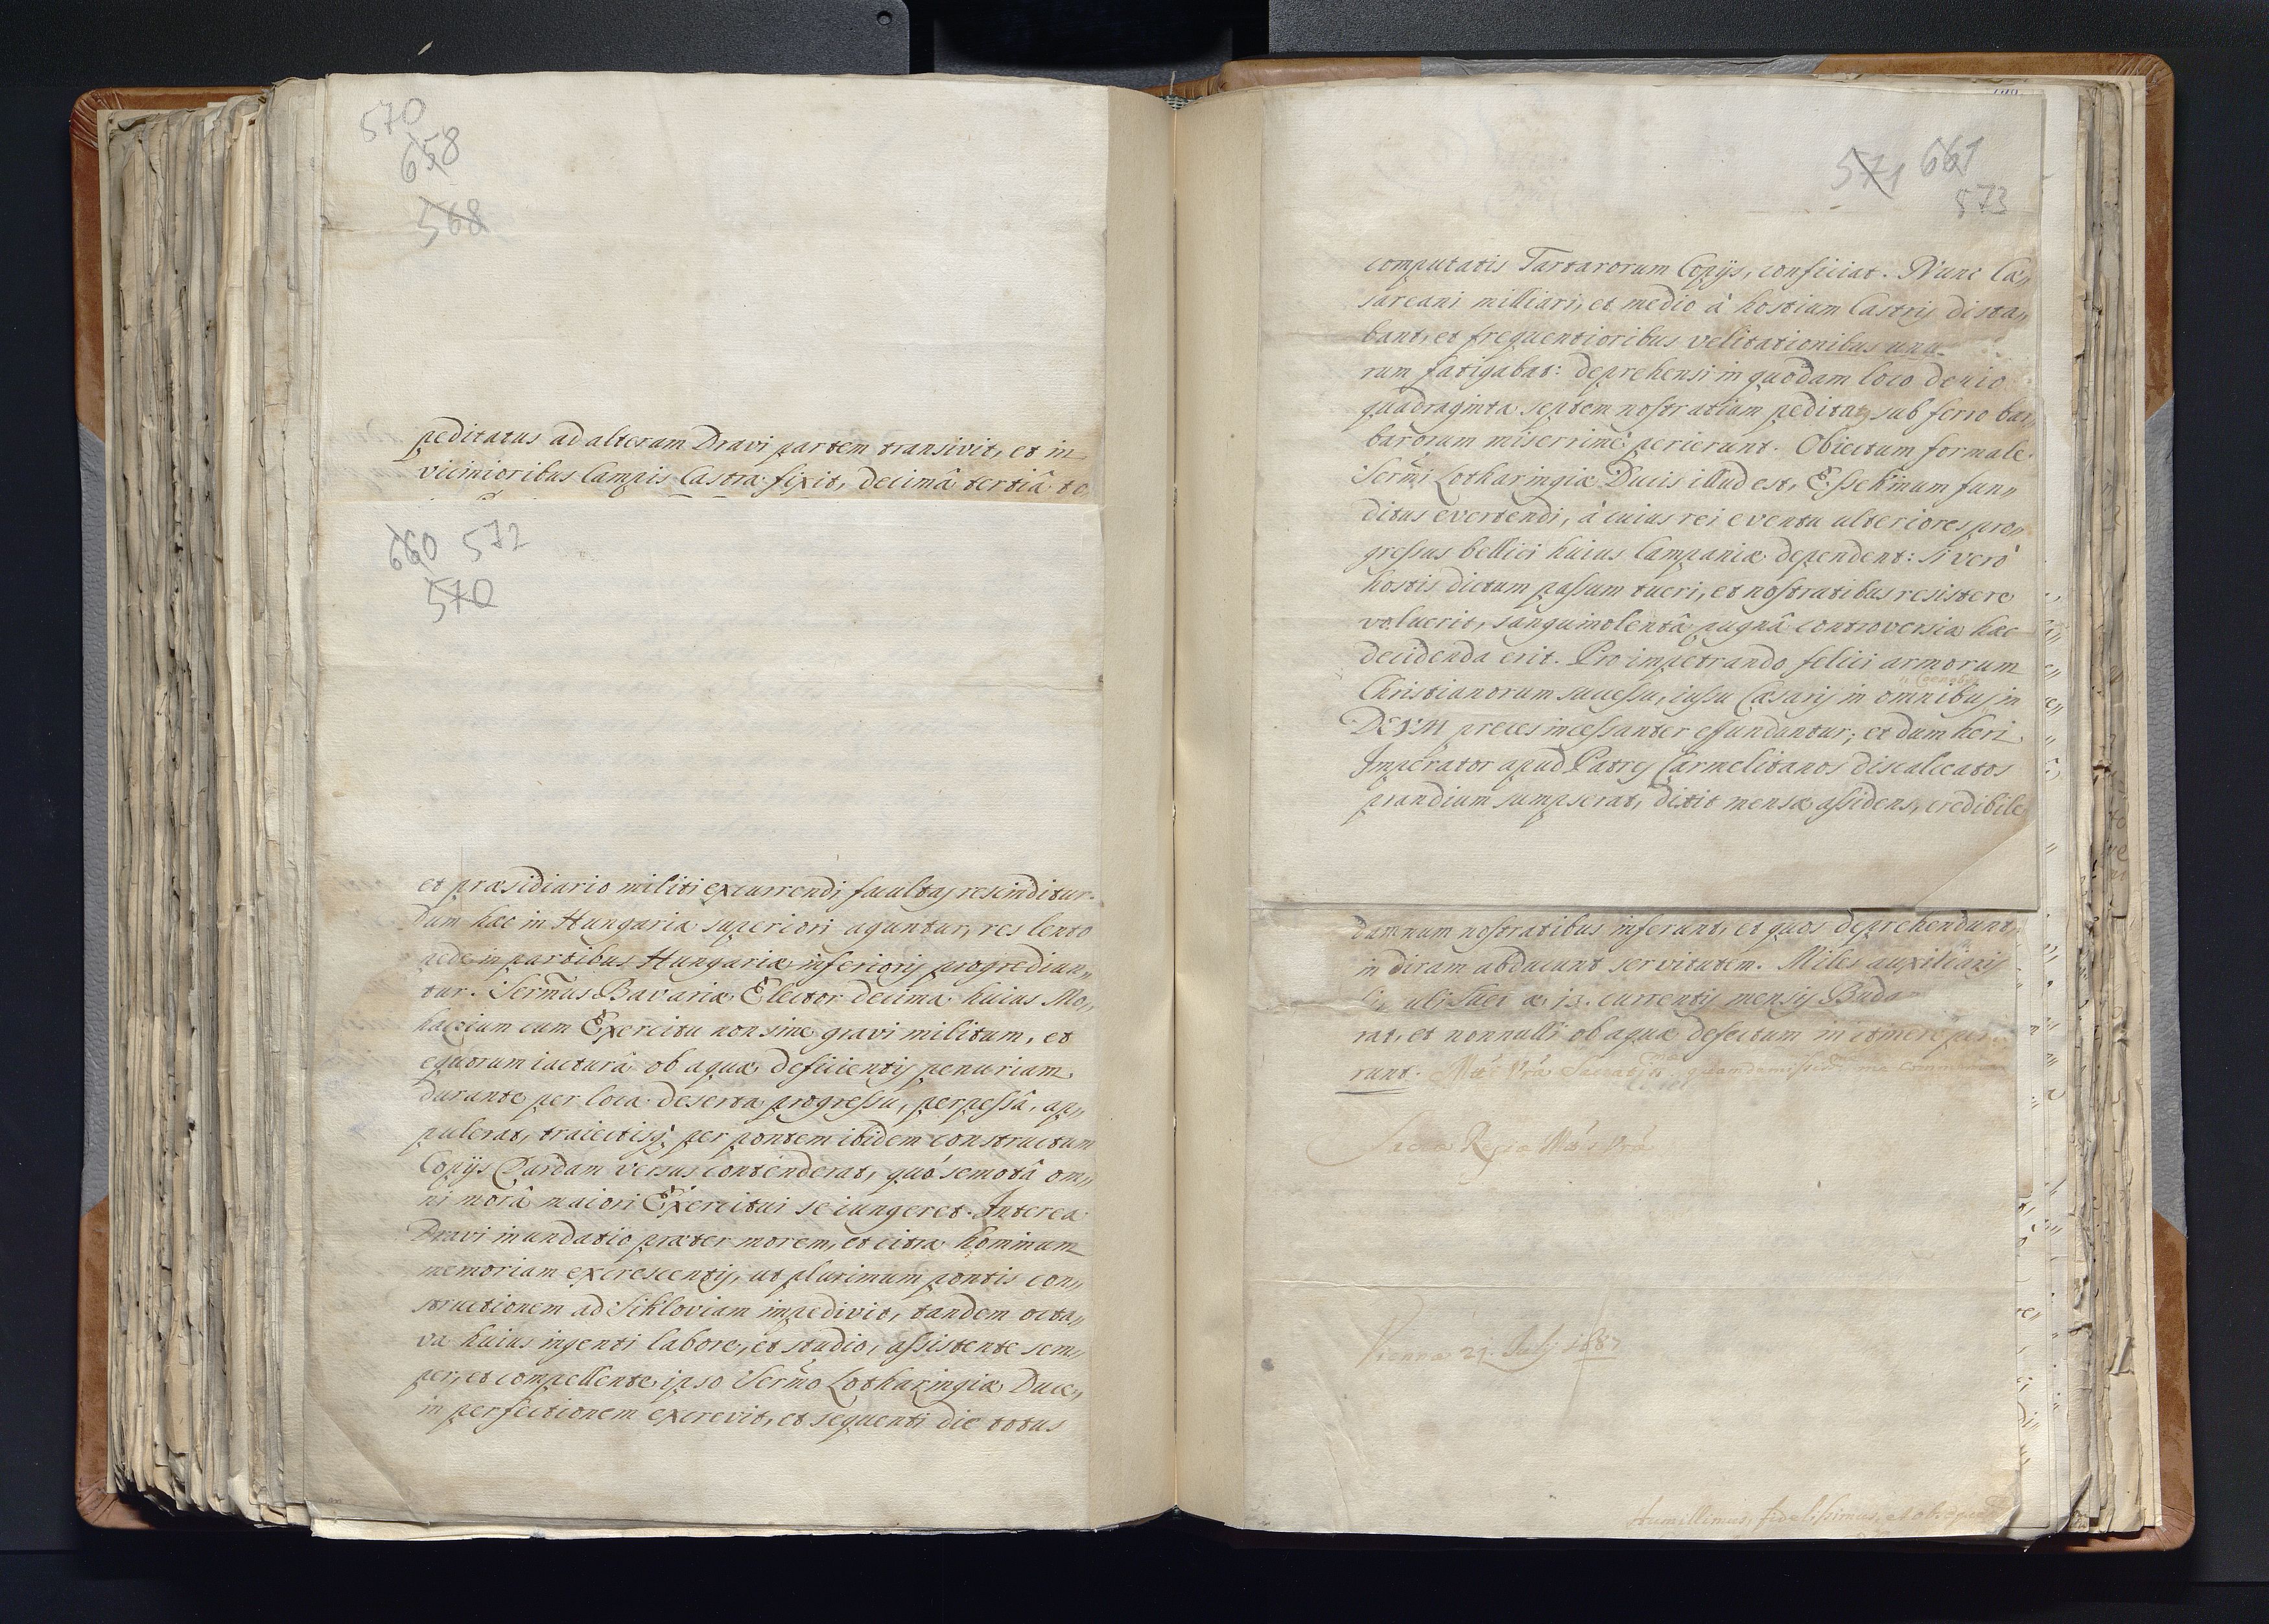 570
658
568
peditatus ad alteram Dravi partem transivit, et in
vicinioribus Campis Castra fixit, decimâ tertiâ
660 572
570
et præsidiario militi excurrendi facultas rescinditur.
dum hæc in Hungaria superiori aguntur, res lento
pede in partibus Hungariæ inferioris progrediun„
tur. Sermus Bavariæ Elector decima huius Mo„
hazium cum Exercitu non sine gravi militum, et
equorum iacturâ ob aquæ deficientis penuriam,
durante per loca deserta progressu, perpessâ, ap„
pulerat, traiectisq; per pontem ibidem constructum
Copijs Dardam versus contenderat, quò semotâ om„
ni morâ maiori Exercitui se iungeret. Interea
Dravi inundatio præter morem, et citra hominum
memoriam excrescentis, ut plurimum pontis con„
structionem ad Sikloviam impedivit, tandem octa„
va huius ingenti labore, et studio, assistente sem„
per, et compellente ipso Sermo Lotharingiæ Duce„
in perfectionem excrevit, et sequenti die totus
571 661
573
computatis Tartarorum Copijs, conficiat. Nunc Cæ„
sareani milliari, et medio à hostium Castris dista„
bant, et frequentioribus velitationibus
rum fatigabat: deprehensi in quodam loco devio
quadraginta septem nostratium peditatus sub ferro bar„
barorum miserrimè perierunt. Obiectum formale
Sermi Lotharingiæ Ducis illud est, Essekinum fun„
ditus evertendi, à cuius rei eventu ulteriores pro„
gressus bellici huius Campaniæ dependent: si verò
hostis dictum passum tueri, et nostratibus resistere
voluerit, sanguinolentâ pugnâ controversia hæc
decidenda erit. Pro impetrando felici armorum
Christianorum successu, iussu Cæsaris in omnibus in
DEVM preces incessanter effundantur; et dum heri
Imperator apud Patres Carmelitanos discalceatos
prandium sumpserat, dixit mensæ assidens, credibile
damnum nostratibus inferunt, et quos deprehendunt,
in diram abducunt servitutem. Miles auxiliaris
13. currentis mensis Buda
rat, et nonnulli ob aquæ defectum in itinere
runt.
Sacræ Regiæ Mtis Vræ
Viennæ 21. Julij 1687
Humillimus, fidelissimus, et